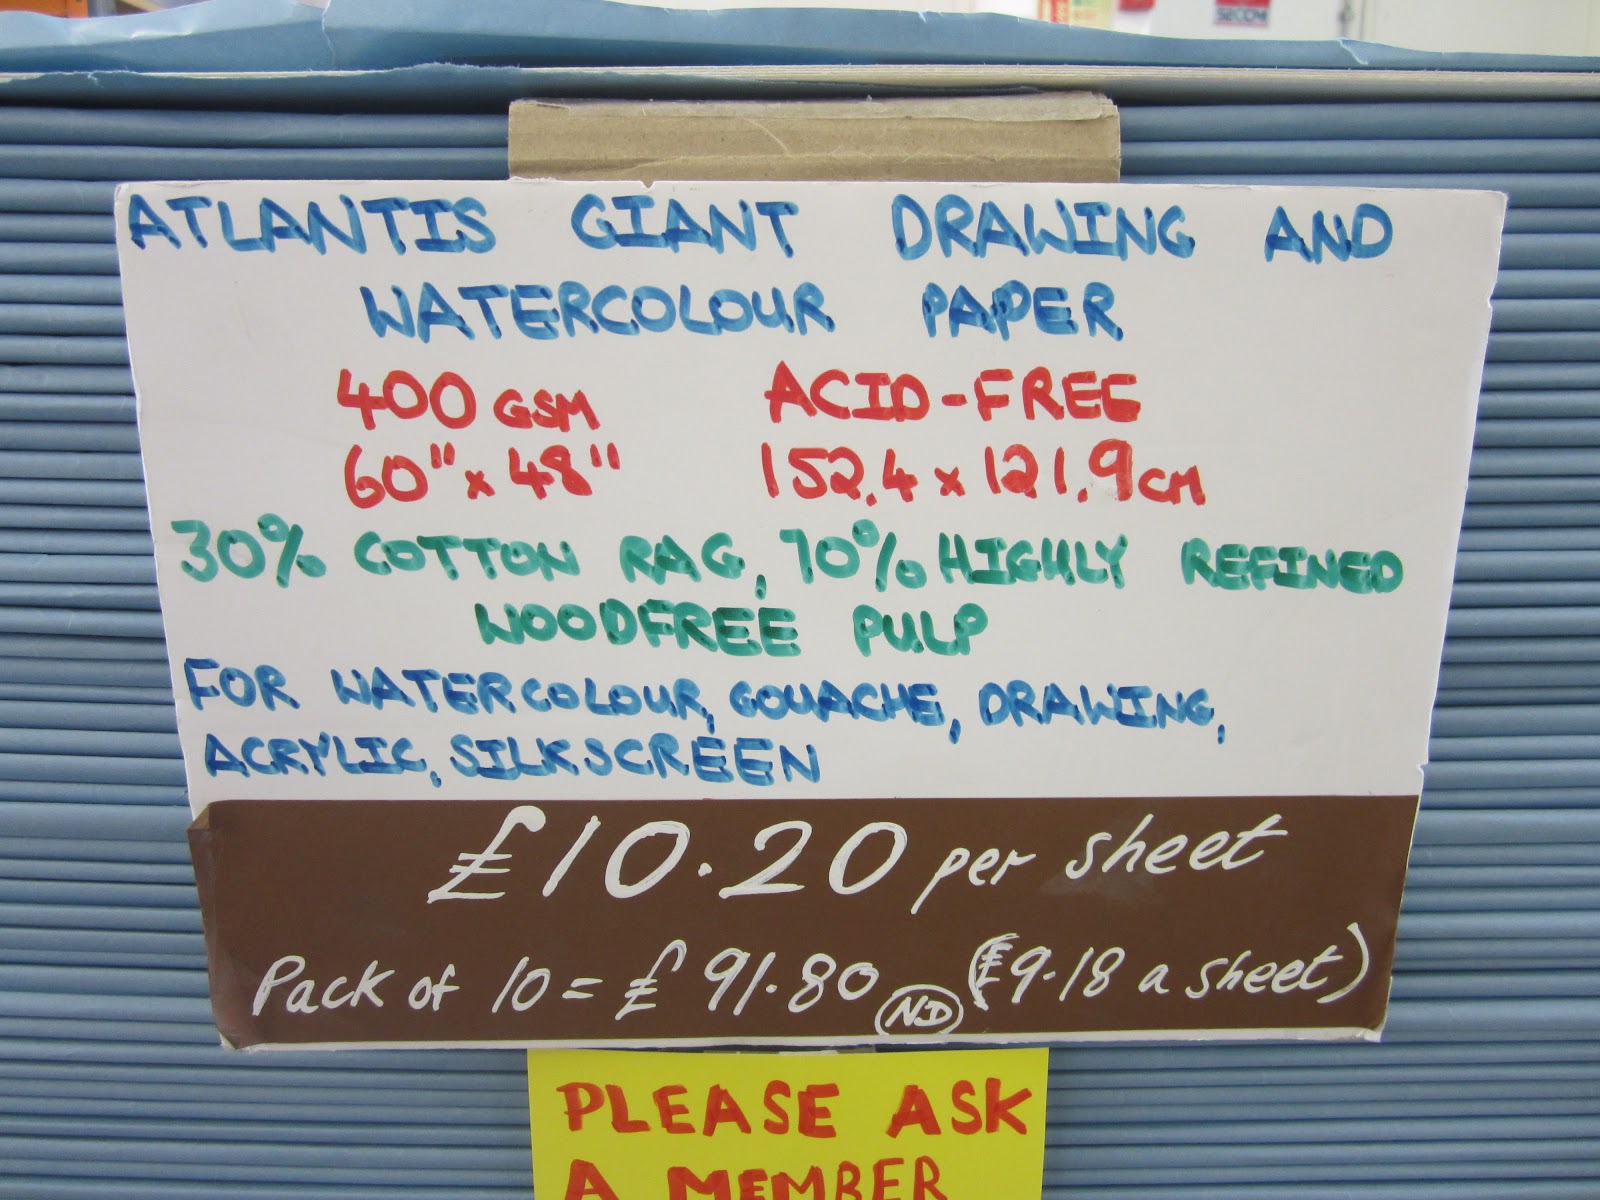 SECOM
ATLANTIS GIANT DRAWING AND
WATERCOLOUR PAPER
400 GSM ACID-FREE
60" x 48" 152.4 x 121.9 CM
30% COTTON RAG, 70% HIGHLY REFINED
WOODFREE PULP
FOR WATERCOLOUR, GOUACHE, DRAWING,
ACRYLIC, SILKSCREEN
£10.20 per sheet
Pack of 10 = £91.80 ND (£9.18 a sheet)
PLEASE ASK
A MEMBER